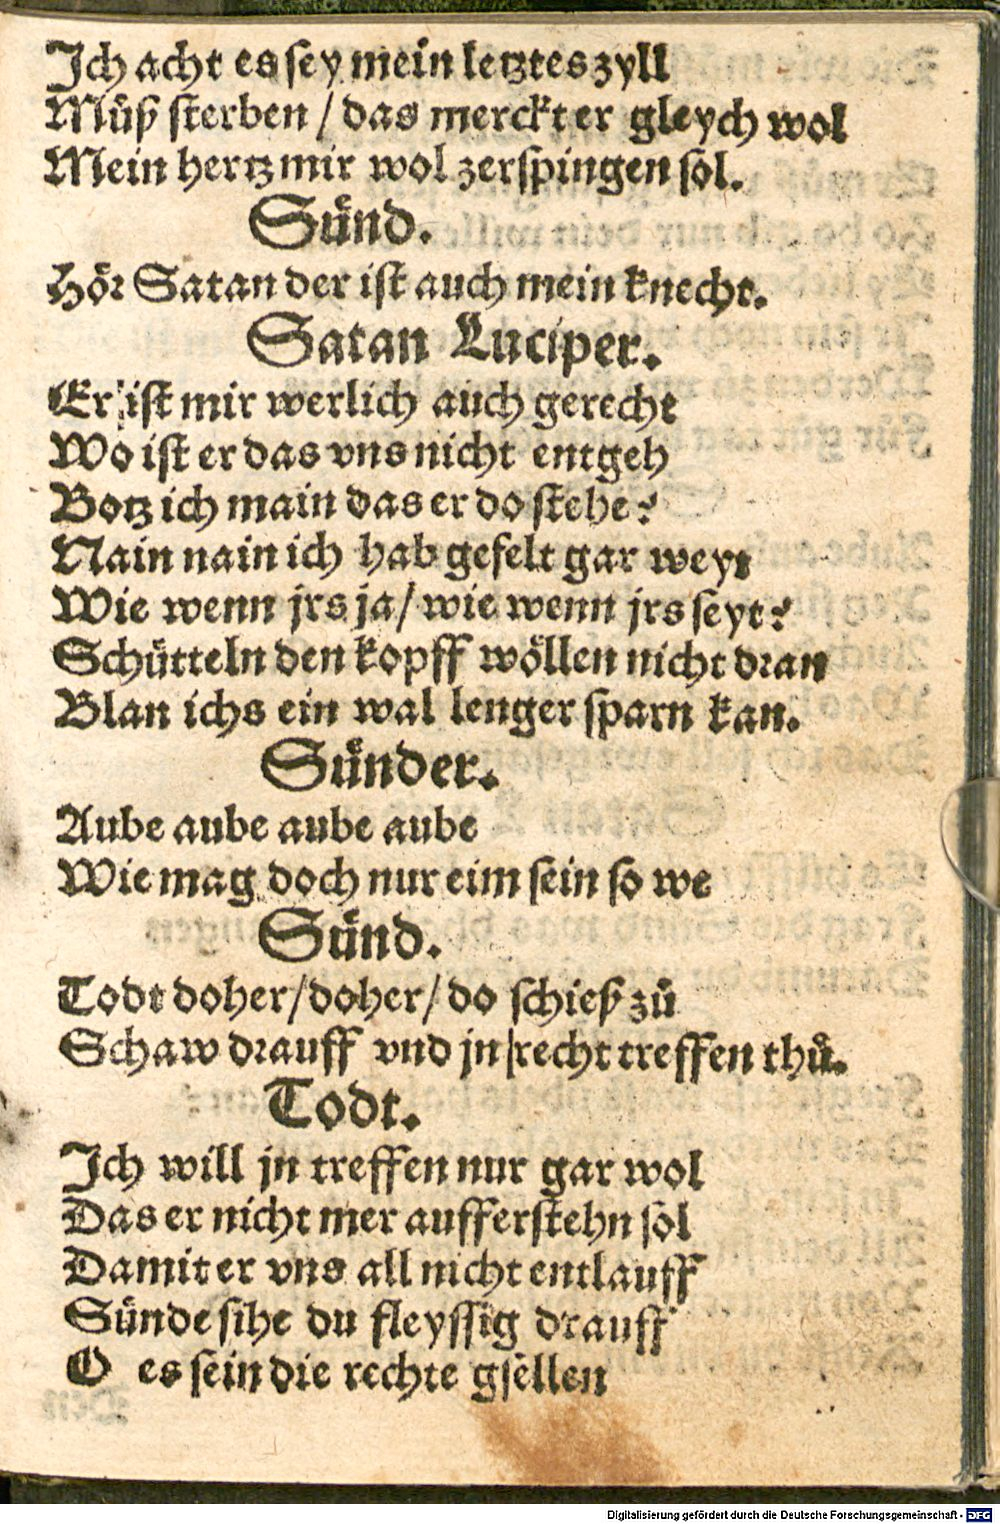 Ich acht es sey mein letztes zyll
Müß sterben / das merckt er gleych wol
Mein hertz mir wol zerspingen sol.
Sünd.
Hör Satan der ist auch mein knecht.
Satan Luciper.
Er ist mir werlich auch gerecht
Wo ist er das vns nicht entgeh
Botz ich main das er do stehe?
Nain nain ich hab gefelt gar weyt
Wie wenn jrs ja / wie wenn jrs seyt?
Schütteln den kopff wöllen nicht dran
Blan ichs ein wal lenger sparn kan.
Sünder.
Aube aube aube aube
Wie mag doch nur eim sein so we
Sünd.
Todt doher / doher / do schieß zů
Schaw drauff vnd jn recht treffen thů.
Todt.
Ich will jn treffen nur gar wol
Das er nicht mer aufferstehn sol
Damit er vns all nicht entlauff
Sünde sihe du fleyssig drauff
O es sein die rechte gsellen
Digitalisierung gefördert durch die Deutsche Forschungsgemeinschaft - DFG